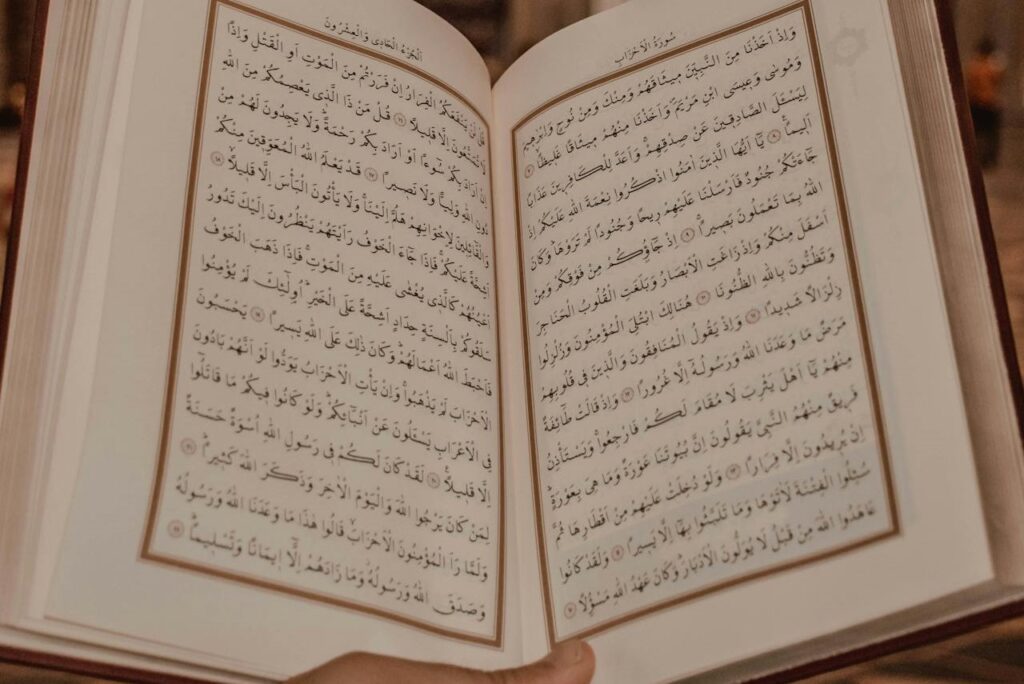 سُورَةُ الْاَحْزَابِ
وَاِذْ اَخَذْنَا مِنَ النَّبِيّٖنَ مٖيثَاقَهُمْ وَمِنْكَ وَمِنْ نُوحٍ وَاِبْرٰهٖيمَ
وَمُوسٰى وَعٖيسَى ابْنِ مَرْيَمَ وَاَخَذْنَا مِنْهُمْ مٖيثَاقًا غَلٖيظًاۙ ٧
لِيَسْـَٔلَ الصَّادِقٖينَ عَنْ صِدْقِهِمْۚ وَاَعَدَّ لِلْكَافِرٖينَ عَذَابًا
اَلٖيمًاۚ ٨ يَٓا اَيُّهَا الَّذٖينَ اٰمَنُوا اذْكُرُوا نِعْمَةَ اللّٰهِ عَلَيْكُمْ اِذْ
جَٓاءَتْكُمْ جُنُودٌ فَاَرْسَلْنَا عَلَيْهِمْ رٖيحًا وَجُنُودًا لَمْ تَرَوْهَاۜ وَكَانَ
اللّٰهُ بِمَا تَعْمَلُونَ بَصٖيرًاۚ ٩ اِذْ جَٓاؤُكُمْ مِنْ فَوْقِكُمْ وَمِنْ
اَسْفَلَ مِنْكُمْ وَاِذْ زَاغَتِ الْاَبْصَارُ وَبَلَغَتِ الْقُلُوبُ الْحَنَاجِرَ
وَتَظُنُّونَ بِاللّٰهِ الظُّنُونَا ١٠ هُنَالِكَ ابْتُلِىَ الْمُؤْمِنُونَ وَزُلْزِلُوا
زِلْزَالًا شَدٖيدًا ١١ وَاِذْ يَقُولُ الْمُنَافِقُونَ وَالَّذٖينَ فٖى قُلُوبِهِمْ
مَرَضٌ مَا وَعَدَنَا اللّٰهُ وَرَسُولُهُٓ اِلَّا غُرُورًا ١٢ وَاِذْ قَالَتْ طَٓائِفَةٌ
مِنْهُمْ يَٓا اَهْلَ يَثْرِبَ لَا مُقَامَ لَكُمْ فَارْجِعُواۚ وَيَسْتَأْذِنُ
فَرٖيقٌ مِنْهُمُ النَّبِىَّ يَقُولُونَ اِنَّ بُيُوتَنَا عَوْرَةٌ وَمَا هِىَ بِعَوْرَةٍۚ
اِنْ يُرٖيدُونَ اِلَّا فِرَارًا ١٣ وَلَوْ دُخِلَتْ عَلَيْهِمْ مِنْ اَقْطَارِهَا ثُمَّ
سُئِلُوا الْفِتْنَةَ لَاٰتَوْهَا وَمَا تَلَبَّثُوا بِهَٓا اِلَّا يَسٖيرًا ١٤ وَلَقَدْ كَانُوا
عَاهَدُوا اللّٰهَ مِنْ قَبْلُ لَا يُوَلُّونَ الْاَدْبَارَۜ وَكَانَ عَهْدُ اللّٰهِ مَسْؤُلًا ١٥
اَلْجُزْءُ الْحَادِى وَالْعِشْرُونَ
قُلْ لَنْ يَنْفَعَكُمُ الْفِرَارُ اِنْ فَرَرْتُمْ مِنَ الْمَوْتِ اَوِ الْقَتْلِ وَاِذًا
لَا تُمَتَّعُونَ اِلَّا قَلٖيلًا ١٦ قُلْ مَنْ ذَا الَّذٖى يَعْصِمُكُمْ مِنَ اللّٰهِ
اِنْ اَرَادَ بِكُمْ سُٓوءًا اَوْ اَرَادَ بِكُمْ رَحْمَةًۜ وَلَا يَجِدُونَ لَهُمْ مِنْ
دُونِ اللّٰهِ وَلِيًّا وَلَا نَصٖيرًا ١٧ قَدْ يَعْلَمُ اللّٰهُ الْمُعَوِّقٖينَ مِنْكُمْ
وَالْقَٓائِلٖينَ لِاِخْوَانِهِمْ هَلُمَّ اِلَيْنَاۚ وَلَا يَأْتُونَ الْبَأْسَ اِلَّا قَلٖيلًاۙ ١٨
اَشِحَّةً عَلَيْكُمْۚ فَاِذَا جَٓاءَ الْخَوْفُ رَاَيْتَهُمْ يَنْظُرُونَ اِلَيْكَ تَدُورُ
اَعْيُنُهُمْ كَالَّذٖى يُغْشٰى عَلَيْهِ مِنَ الْمَوْتِۚ فَاِذَا ذَهَبَ الْخَوْفُ
سَلَقُوكُمْ بِاَلْسِنَةٍ حِدَادٍ اَشِحَّةً عَلَى الْخَيْرِۜ اُولٰٓئِكَ لَمْ يُؤْمِنُوا
فَاَحْبَطَ اللّٰهُ اَعْمَالَهُمْۜ وَكَانَ ذٰلِكَ عَلَى اللّٰهِ يَسٖيرًا ١٩ يَحْسَبُونَ
الْاَحْزَابَ لَمْ يَذْهَبُواۚ وَاِنْ يَأْتِ الْاَحْزَابُ يَوَدُّوا لَوْ اَنَّهُمْ بَادُونَ
فِى الْاَعْرَابِ يَسْـَٔلُونَ عَنْ اَنْبَٓائِكُمْۜ وَلَوْ كَانُوا فٖيكُمْ مَا قَاتَلُٓوا
اِلَّا قَلٖيلًا ٢٠ لَقَدْ كَانَ لَكُمْ فٖى رَسُولِ اللّٰهِ اُسْوَةٌ حَسَنَةٌ
لِمَنْ كَانَ يَرْجُوا اللّٰهَ وَالْيَوْمَ الْاٰخِرَ وَذَكَرَ اللّٰهَ كَثٖيرًاۜ ٢١
وَلَمَّا رَاَ الْمُؤْمِنُونَ الْاَحْزَابَۙ قَالُوا هٰذَا مَا وَعَدَنَا اللّٰهُ وَرَسُولُهُ
وَصَدَقَ اللّٰهُ وَرَسُولُهُۘ وَمَا زَادَهُمْ اِلَّٓا اٖيمَانًا وَتَسْلٖيمًاۜ ٢٢